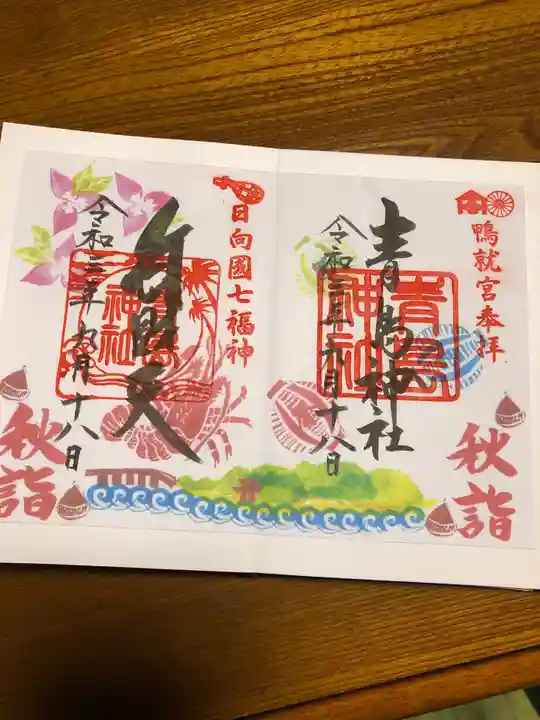 鴨就宮奉拝
青島神社
青島神社
令和三年九月十八日
秋詣
日向國七福神
弁財天
青島神社
令和三年九月十八日
秋詣